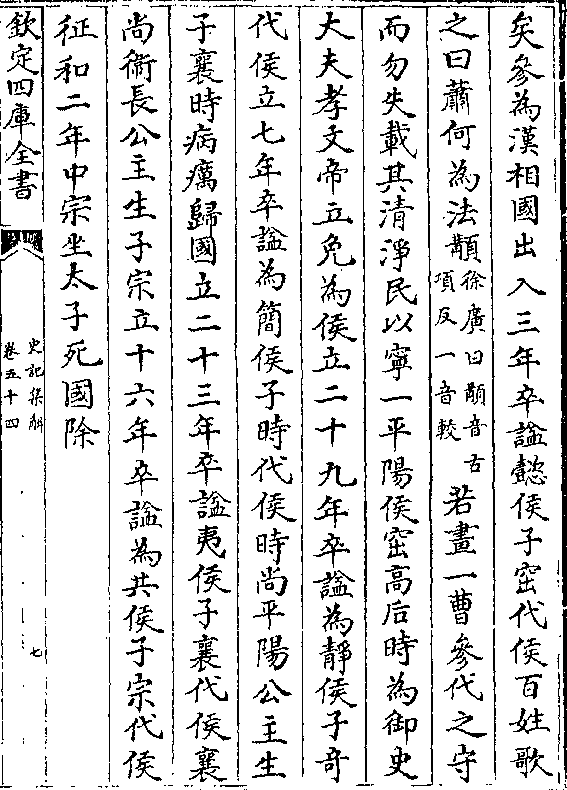 矣參為漢相國出入三年卒諡懿侯子窋代侯百姓歌
之曰蕭何為法顜徐廣曰顜音古項反一音較若畫一曹參代之守
而勿失載其清淨民以寧一平陽侯窋高后時為御史
大夫孝文帝立免為侯立二十九年卒諡為靜侯子奇
代侯立七年卒諡為簡侯子時代侯時尚平陽公主生
子襄時病癘歸國立二十三年卒諡夷侯子襄代侯襄
尚衛長公主生子宗立十六年卒諡為共侯子宗代侯
征和二年中宗坐太子死國除
欽定四庫全書
史記集解
卷五十四
七